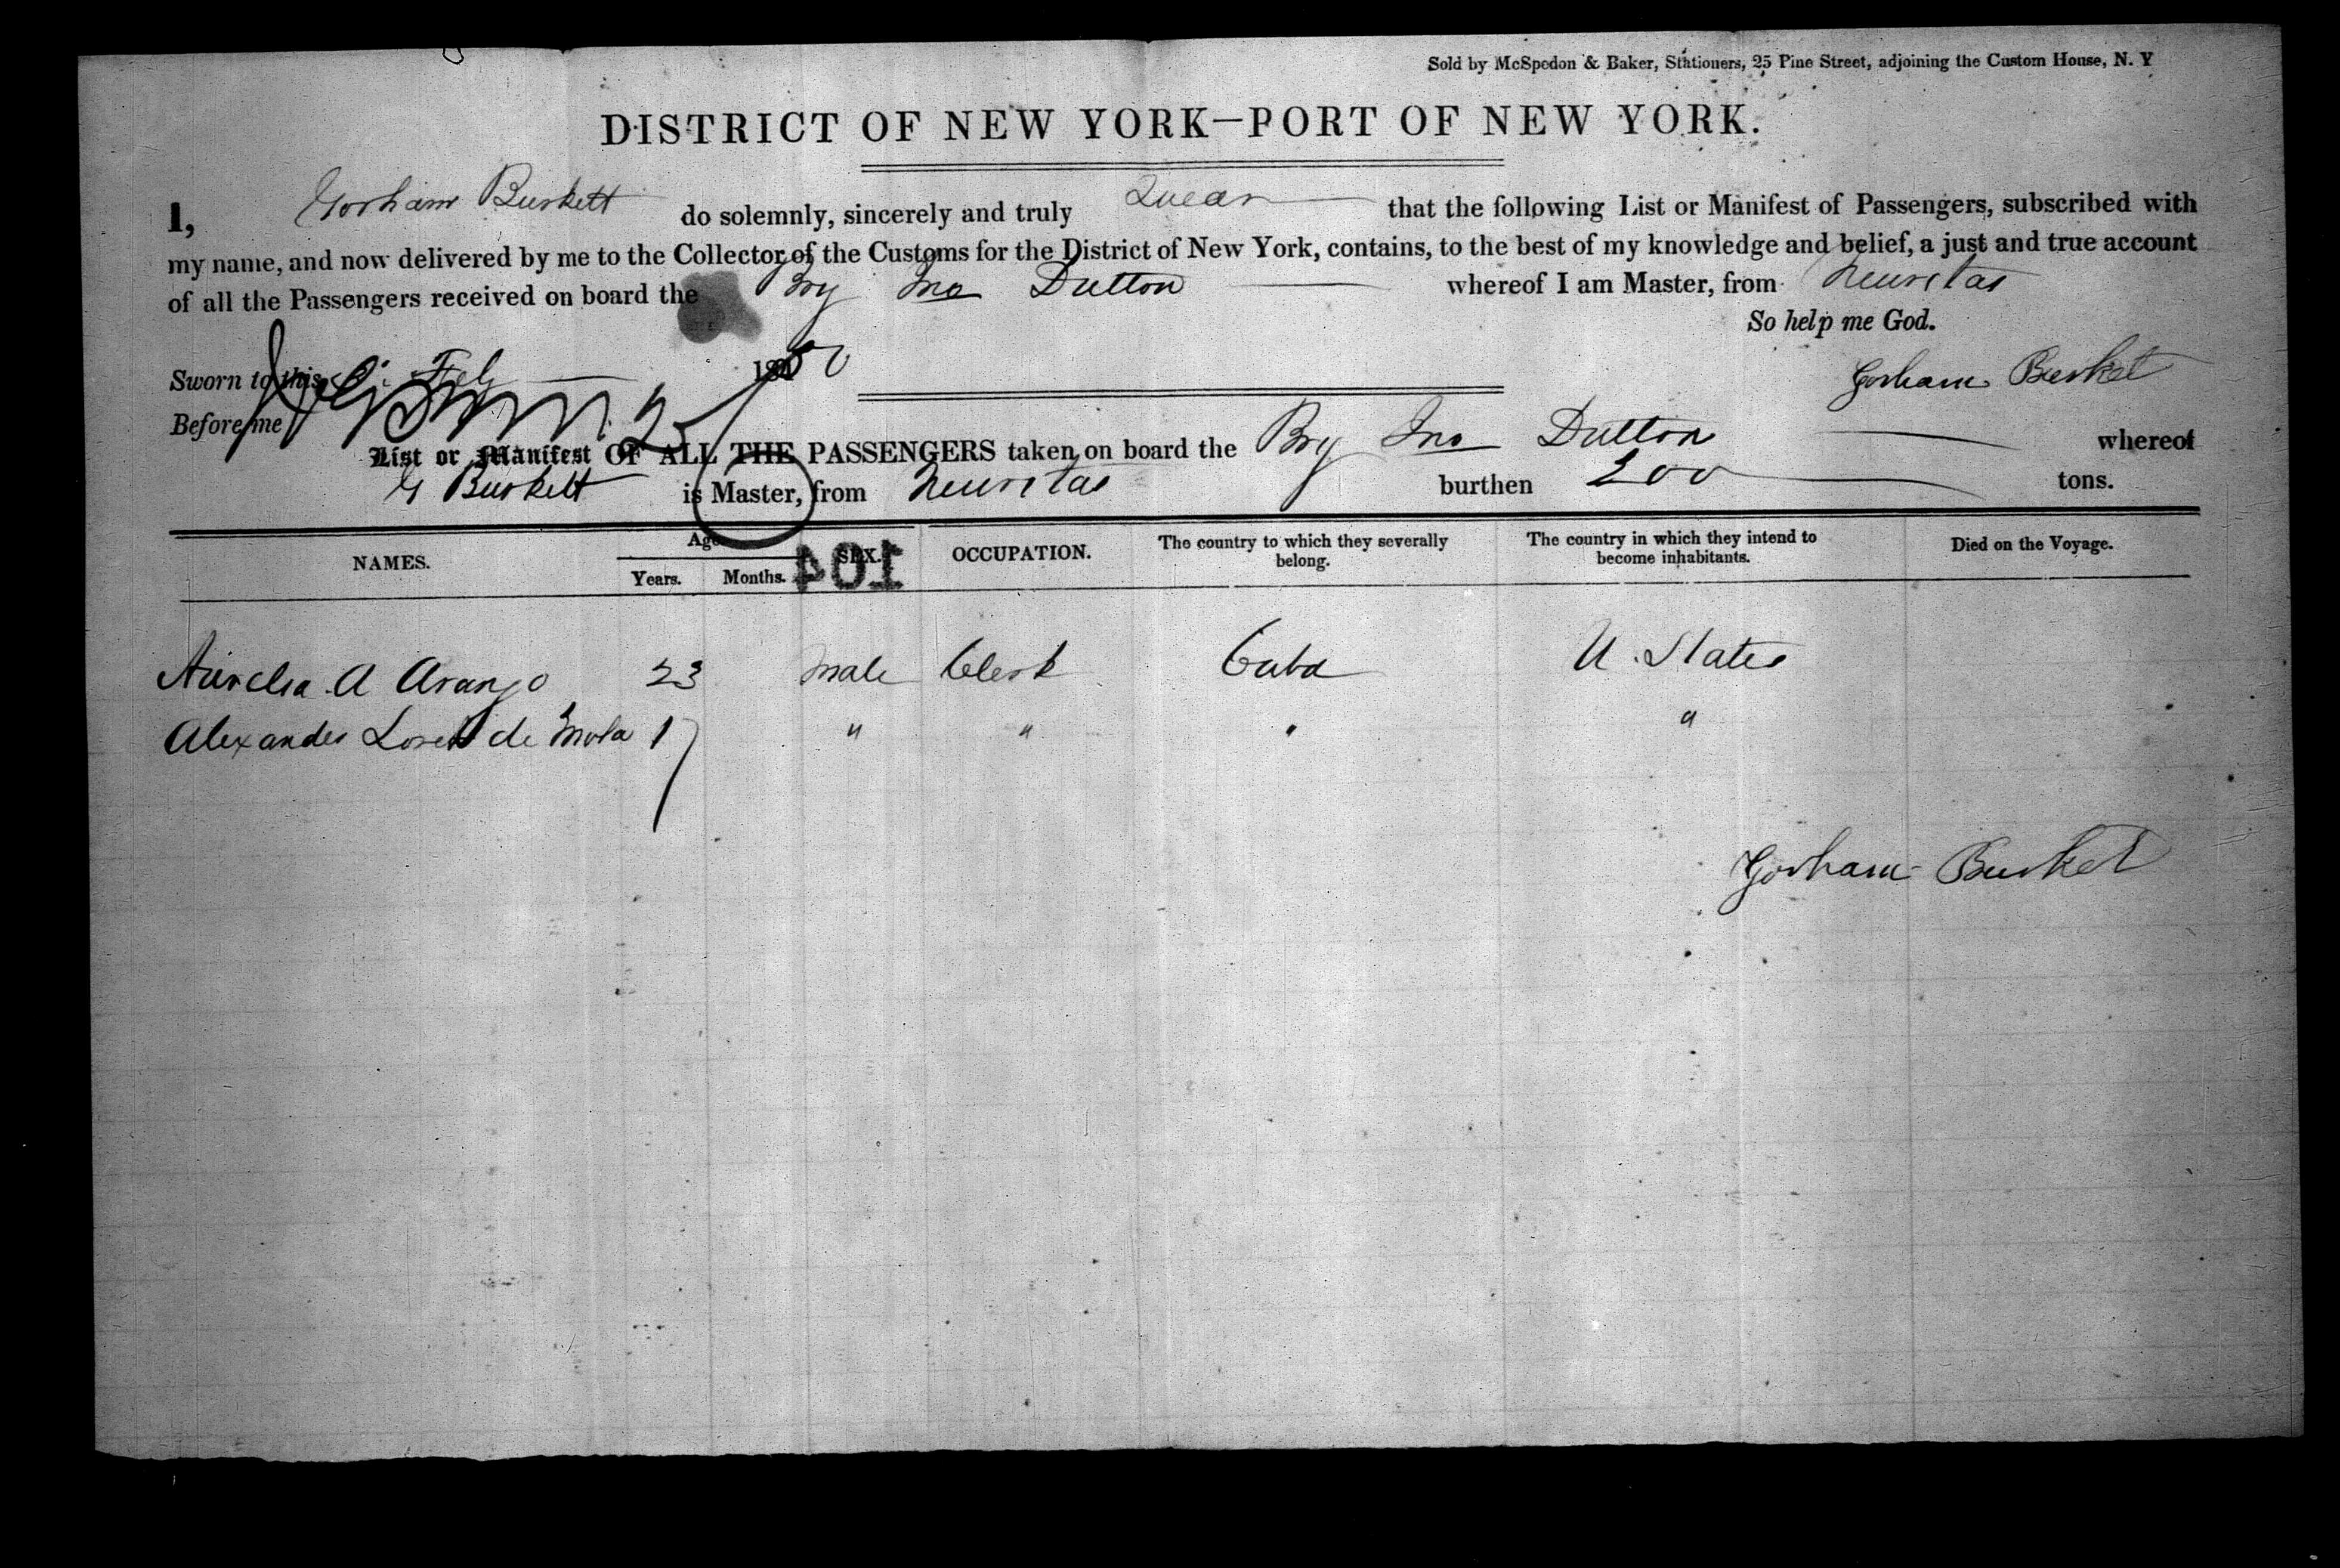 Sold by McSpedon & Baker, Stationers, 25 Pine Street, adjoining the Custom House, N. Y
DISTRICT OF NEW YORK—PORT OF NEW YORK.
I, Gorham Burkett do solemnly, sincerely and truly swear that the following List or Manifest of Passengers, subscribed with
my name, and now delivered by me to the Collector of the Customs for the District of New York, contains, to the best of my knowledge and belief, a just and true account
of all the Passengers received on board the Brg Jno Dutton whereof I am Master, from Neuvitas
So help me God.
Sworn to this Feby 1850
Gorham Burket
Before me
List or Manifest OF ALL THE PASSENGERS taken on board the Brg Jno Dutton whereof
G Burkett is Master, from Neuvitas burthen 200 tons.
NAMES. Age Years. Months. SEX. OCCUPATION. The country to which they severally belong. The country in which they intend to become inhabitants. Died on the Voyage.
104
Aurelia A Arango 23 Male Clerk Cuba U. States
Alexander de Mola 17 " " " "
Gorham Burket